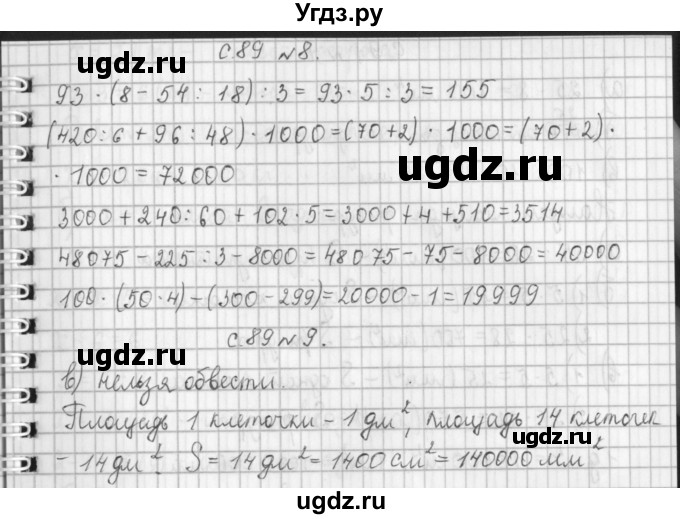 Угдз.ру
с.89 №8.
93 · (8 - 54 : 18) : 3 = 93 · 5 : 3 = 155
(420 : 6 + 96 : 48) · 1000 = (70 + 2) · 1000 = (70 + 2) ·
· 1000 = 72000
3000 + 240 : 60 + 102 · 5 = 3000 + 4 + 510 = 3514
48075 - 225 : 3 - 8000 = 48075 - 75 - 8000 = 40000
100 · (50 · 4) - (300 - 299) = 20000 - 1 = 19999
с.89 №9.
в) нельзя обвести.
Площадь 1 клеточки - 1 дм², площадь 14 клеточек
- 14 дм². S = 14 дм² = 1400 см² = 140000 мм²
ugdz.ru
ugdz.ru
ugdz.ru
ugdz.ru
ugdz.ru
ugdz.ru
ugdz.ru